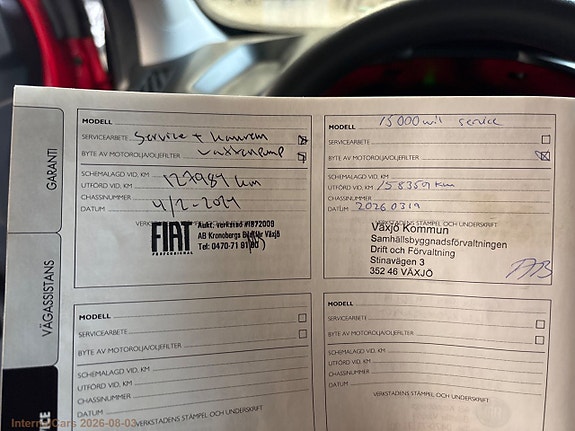 GARANTI
VÄGASSISTANS
MODELL
SERVICEARBETE Service + kamrem
BYTE AV MOTOROLJA/OLJEFILTER
SCHEMALAGD VID, KM
UTFÖRD VID, KM 127984 km
CHASSINUMMER
DATUM 4/2-2021
VERKSTADENS STÄMPEL OCH UNDERSKRIFT
FIAT
PROFESSIONAL
Aukt. verkstad #1872008
AB Kronobergs Bildepår Växjö
Tel: 0470-71 81 00
MODELL 15000 mil service
SERVICEARBETE
BYTE AV MOTOROLJA/OLJEFILTER
SCHEMALAGD VID, KM
UTFÖRD VID, KM 158359 km
CHASSINUMMER
DATUM 20260319
VERKSTADENS STÄMPEL OCH UNDERSKRIFT
Växjö Kommun
Samhällsbyggnadsförvaltningen
Drift och Förvaltning
Stinavägen 3
352 46 VÄXJÖ
MODELL
SERVICEARBETE
BYTE AV MOTOROLJA/OLJEFILTER
SCHEMALAGD VID, KM
UTFÖRD VID, KM
CHASSINUMMER
DATUM
VERKSTADENS STÄMPEL OCH UNDERSKRIFT
MODELL
SERVICEARBETE
BYTE AV MOTOROLJA/OLJEFILTER
SCHEMALAGD VID, KM
UTFÖRD VID, KM
CHASSINUMMER
DATUM
VERKSTADENS STÄMPEL OCH UNDERSKRIFT
2026-08-03